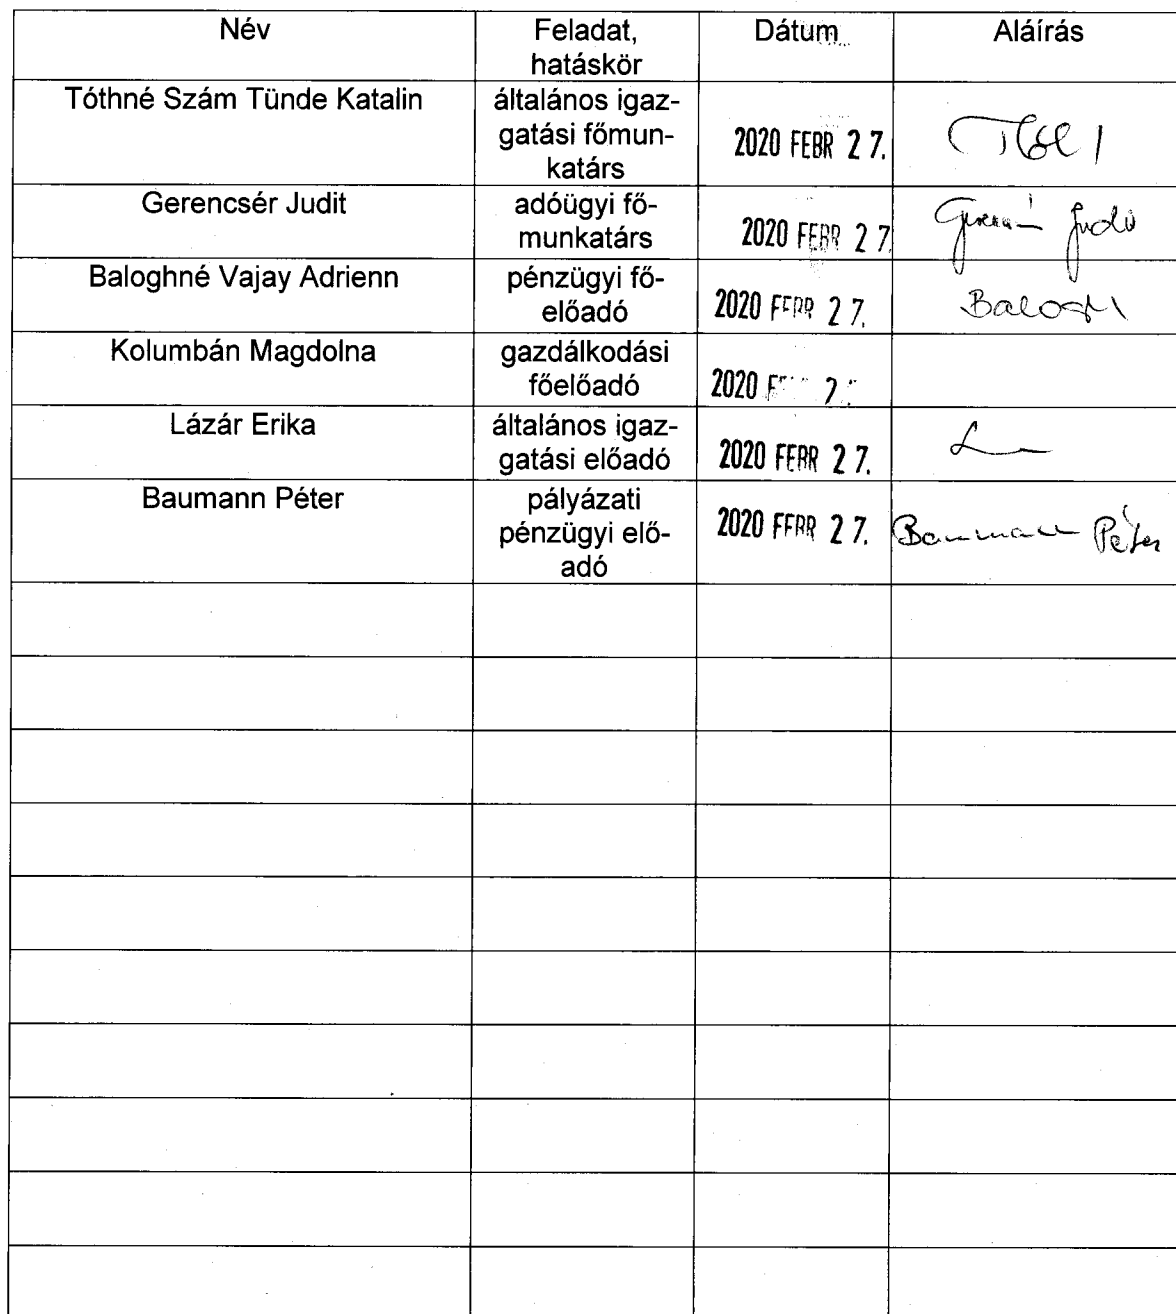 Név Feladat, Dátum Aláírás
hatáskör
Tóthné Szám Tünde Katalin általános igaz-
gatási főmun-
katárs
2020 FEBR 27.
Gerencsér Judit adóügyi fő-
munkatárs
2020 FEBR 27
Baloghné Vajay Adrienn pénzügyi fő-
előadó
2020 FEBR 27. Balogh
Kolumbán Magdolna gazdálkodási
főelőadó
2020
Lázár Erika általános igaz-
gatási előadó
2020 FEBR 27.
Baumann Péter pályázati
pénzügyi elő-
adó
2020 FEBR 27. Baumann Péter